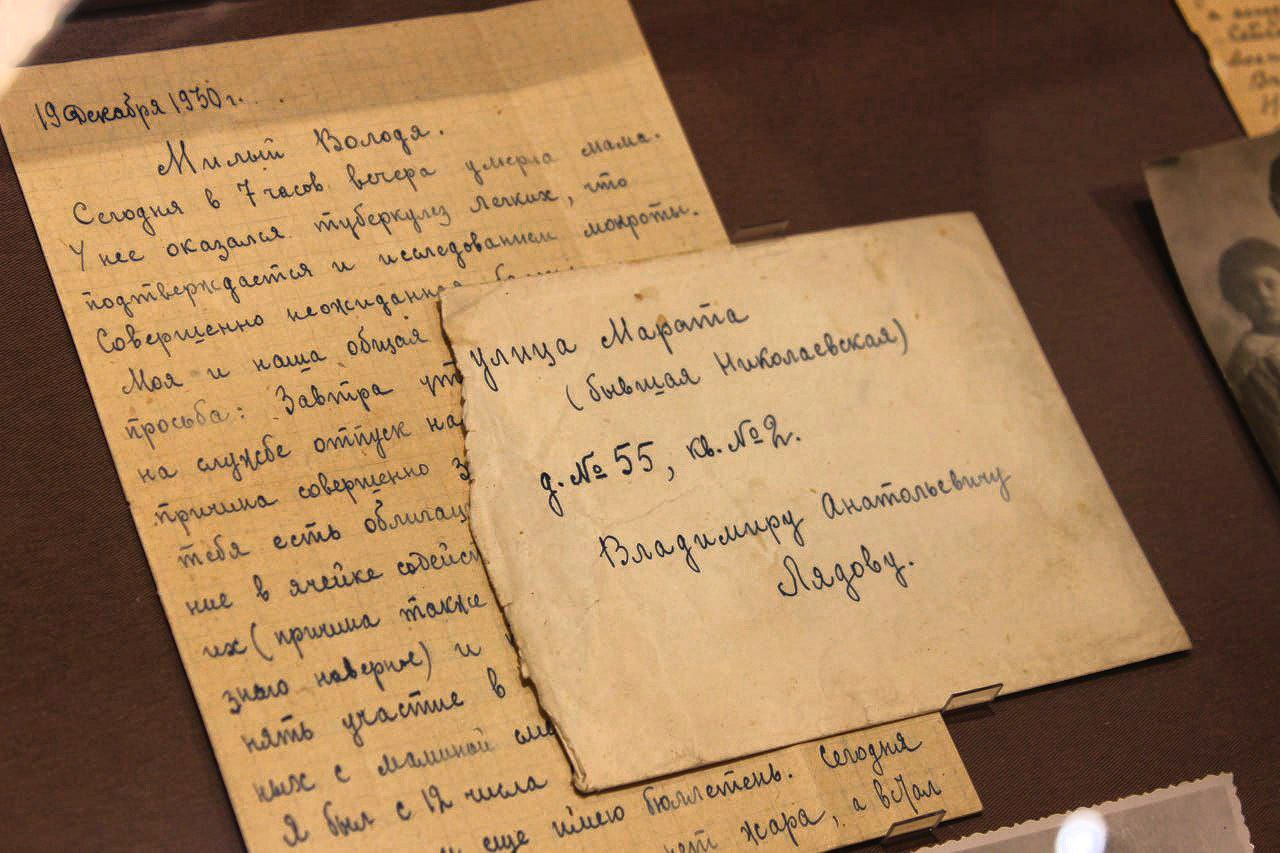 19 Декабря 1930 г.
Милый Володя.
Сегодня в 7 часов вечера умерла мама.
У нее оказался туберкулез легких, что
подтверждается и исследованием мокроты.
Совершенно неожиданная
Моя и наша общая
просьба: Завтра
на службе отпуск на
причина совершенно
тебя есть
ние в ячейке
их (причина также
знаю наверное) и
нять участие в
ных с маминой
Я был с 12 числа
еще имею бюллетень. Сегодня
нет жара, а
улица Марата
(бывшая Николаевская)
д. № 55, кв. № 2.
Владимиру Анатольевичу
Лядову.